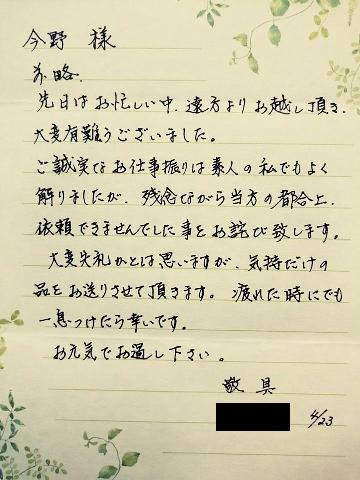 今野 様
前略、
先日はお忙しい中、遠方よりお越し頂き、
大変有難うございました。
ご誠実なお仕事振りは素人の私でもよく
解りましたが、残念ながら当方の都合上、
依頼できませんでした事をお詫び致します。
大変失礼かとは思いますが、気持だけの
品をお送りさせて頂きます。疲れた時にでも
一息つけたら幸いです。
お元気でお過し下さい。
敬具
4/23